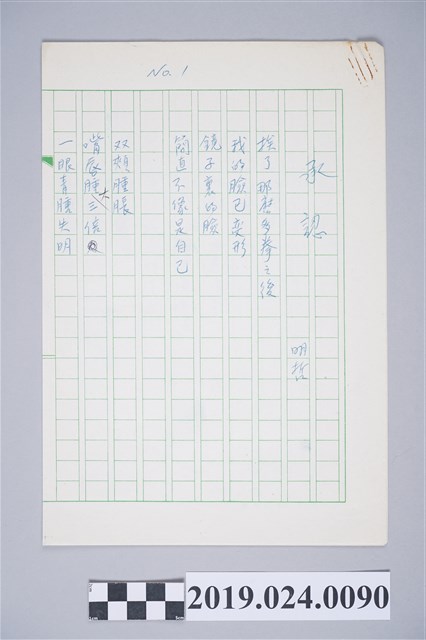 No. 1
承認
明哲
挨了那麽多拳之後
我的臉已変形
鏡子裏的臉
簡直不像是自己
双頰腫脹
嘴唇腫大三倍
一眼青腫失明
2019.024.0090